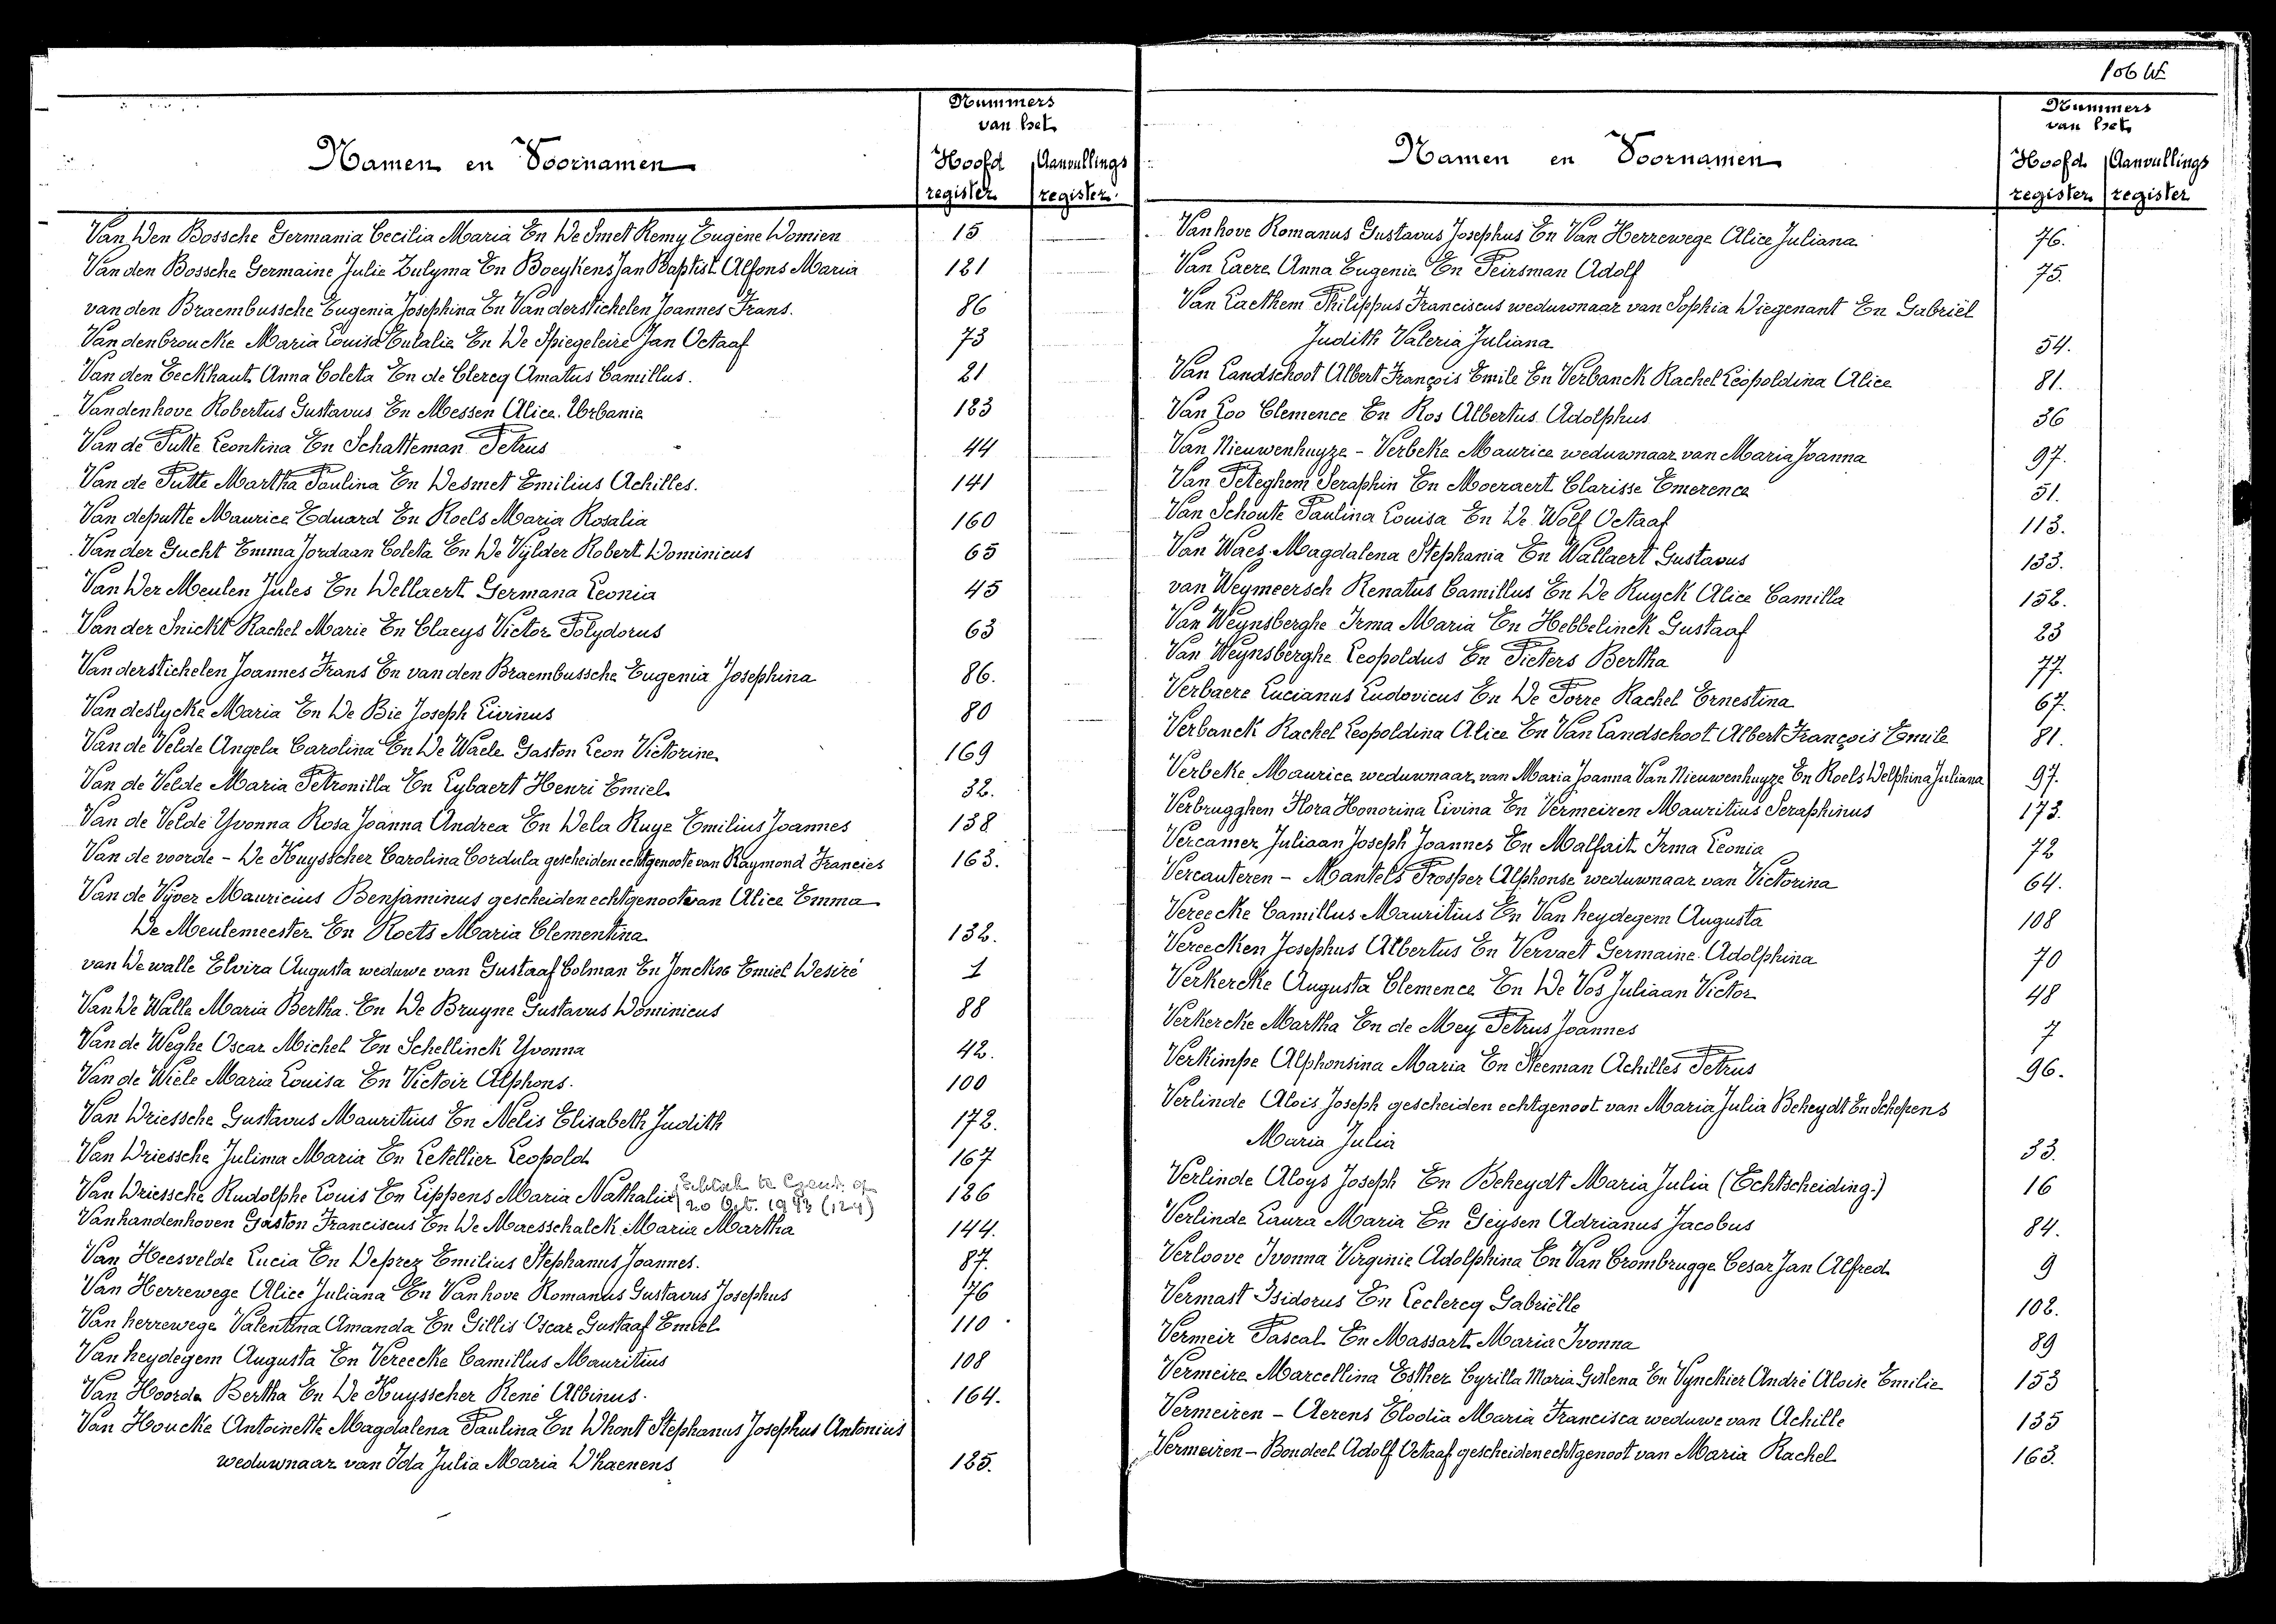 Nummers
van het
Namen en Voornamen
Hoofd Aanvullings
register register
Van Den Bossche Germania Cecilia Maria En De Smet Remy Eugène Domien 15
Van den Bossche Germaine Julie Zulyma En Boeykens Jan Baptist Alfons Maria 121
van den Braembussche Eugenia Josephina En Vanderstichelen Joannes Frans. 86
Vandenbroucke Maria Louisa Eulalie En De Spiegeleire Jan Octaaf 73
Van den Eeckhaut Anna Coleta En de Clercq Amatus Camillus. 21
Vandenhove Robertus Gustavus En Messen Alice Urbanie 123
Van de Putte Leontina En Schatteman Petrus 44
Van de Putte Martha Paulina En Desmet Emilius Achilles. 141
Van deputte Maurice Eduard En Roels Maria Rosalia 160
Van der Gucht Emma Jordaan Coleta En De Vylder Robert Dominicus 65
Van Der Meulen Jules En Dellaert Germana Leonia 45
Van der Snickt Rachel Marie En Claeys Victor Polydorus 63
Vanderstichelen Joannes Frans En van den Braembussche Eugenia Josephina 86.
Vandeslycke Maria En De Bie Joseph Livinus 80
Van de Velde Angela Carolina En De Waele Gaston Leon Victorine 169
Van de Velde Maria Petronilla En Lybaert Henri Emiel 32.
Van de Velde Yvonna Rosa Joanna Andrea En Dela Ruye Emilius Joannes 138
Van de voorde - De Kuysscher Carolina Cordula gescheiden echtgenoote van Raymond Francies 163.
Van de Vyver Mauricius Benjaminus gescheiden echtgenoot van Alice Emma
De Meulemeester En Roets Maria Clementina 132.
van De walle Elvira Augusta weduwe van Gustaaf Colman En Jonckre Emiel Desiré 1
Van De Walle Maria Bertha En De Bruyne Gustavus Dominicus 88
Van de Weghe Oscar Michel En Schellinck Yvonna 42.
Van de Wiele Maria Louisa En Victoir Alphons. 100
Van Driessche Gustavus Mauritius En Nelis Elisabeth Judith 172.
Van Driessche Julima Maria En Letellier Leopold 167
Van Driessche Rudolphe Louis En Lippens Maria Nathalia te Gent op 20 Oct. 1943 (124) 126
Vanhandenhoven Gaston Franciscus En De Maesschalck Maria Martha 144.
Van Heesvelde Lucia En Deprez Emilius Stephanus Joannes. 87.
Van Herrewege Alice Juliana En Vanhove Romanus Gustavus Josephus 76
Van herrewege Valentina Amanda En Gillis Oscar Gustaaf Emiel 110
Van heydegem Augusta En Vereecke Camillus Mauritius 108
Van Hoorde Bertha En De Kuysscher René Albinus. 164.
Van Houcke Antoinette Magdalena Paulina En Dhont Stephanus Josephus Antonius
weduwnaar van Ida Julia Maria D'haenens 125.
Nummers
van het
Namen en Voornamen
Hoofd Aanvullings
register register
Vanhove Romanus Gustavus Josephus En Van Herrewege Alice Juliana 76.
Van Laere Anna Eugenie En Peirsman Adolf 75.
Van Laethem Philippus Franciscus weduwnaar van Sophia Diegenant En Gabriël
Judith Valeria Juliana 54.
Van Landschoot Albert François Emile En Verbanck Rachel Léopoldina Alice 81.
Van Loo Clemence En Ros Albertus Adolphus 36
Van Nieuwenhuyze - Verbeke Maurice weduwnaar van Maria Joanna 97.
Van Peteghem Seraphin En Moeraert Clarisse Emerence 51.
Van Schoute Paulina Louisa En De Wolf Octaaf 113.
Van Waes Magdalena Stephania En Wallaert Gustavus 133.
van Weymeersch Renatus Camillus En De Ruyck Alice Camilla 152.
Van Weynsberghe Irma Maria En Hebbelinck Gustaaf 23
Van Weynsberghe Leopoldus En Pieters Bertha 77.
Verbaere Lucianus Ludovicus En De Porre Rachel Ernestina 67.
Verbanck Rachel Leopoldina Alice En Van Landschoot Albert François Emile 81.
Verbeke Maurice weduwnaar van Maria Joanna Van Nieuwenhuyze En Roels Delphina Juliana 97.
Verbrugghen Flora Honorina Livina En Vermeiren Mauritius Seraphinus 173.
Vercamer Juliaan Joseph Joannes En Malfait Irma Leonia 72
Vercauteren - Mantels Prosper Alphonse weduwnaar van Victorina 64.
Vereecke Camillus Mauritius En Van heydegem Augusta 108
Vereecken Josephus Albertus En Vervaet Germaine Adolphina 70
Verkercke Augusta Clemence En De Vos Juliaan Victor 48
Verkercke Martha En de Mey Petrus Joannes 7
Verkimpe Alphonsina Maria En Steeman Achilles Petrus 96.
Verlinde Alois Joseph gescheiden echtgenoot van Maria Julia Beheydt En Schepens
Maria Julia 33.
Verlinde Aloys Joseph En Beheydt Maria Julia (Echtscheiding.) 16
Verlinde Laura Maria En Geysen Adrianus Jacobus 84.
Verloove Ivonna Virginie Adolphina En Van Crombrugge Cesar Jan Alfred 9
Vermast Isidorus En Leclercq Gabriëlle 102.
Vermeir Pascal En Massart Maria Ivonna 89
Vermeire Marcellina Esther Cyrilla Maria Gislena En Vynckier André Aloise Emilie 153
Vermeiren - Aerens Elodia Maria Francisca weduwe van Achille 135
Vermeiren - Bondeel Adolf Octaaf gescheiden echtgenoot van Maria Rachel 163.